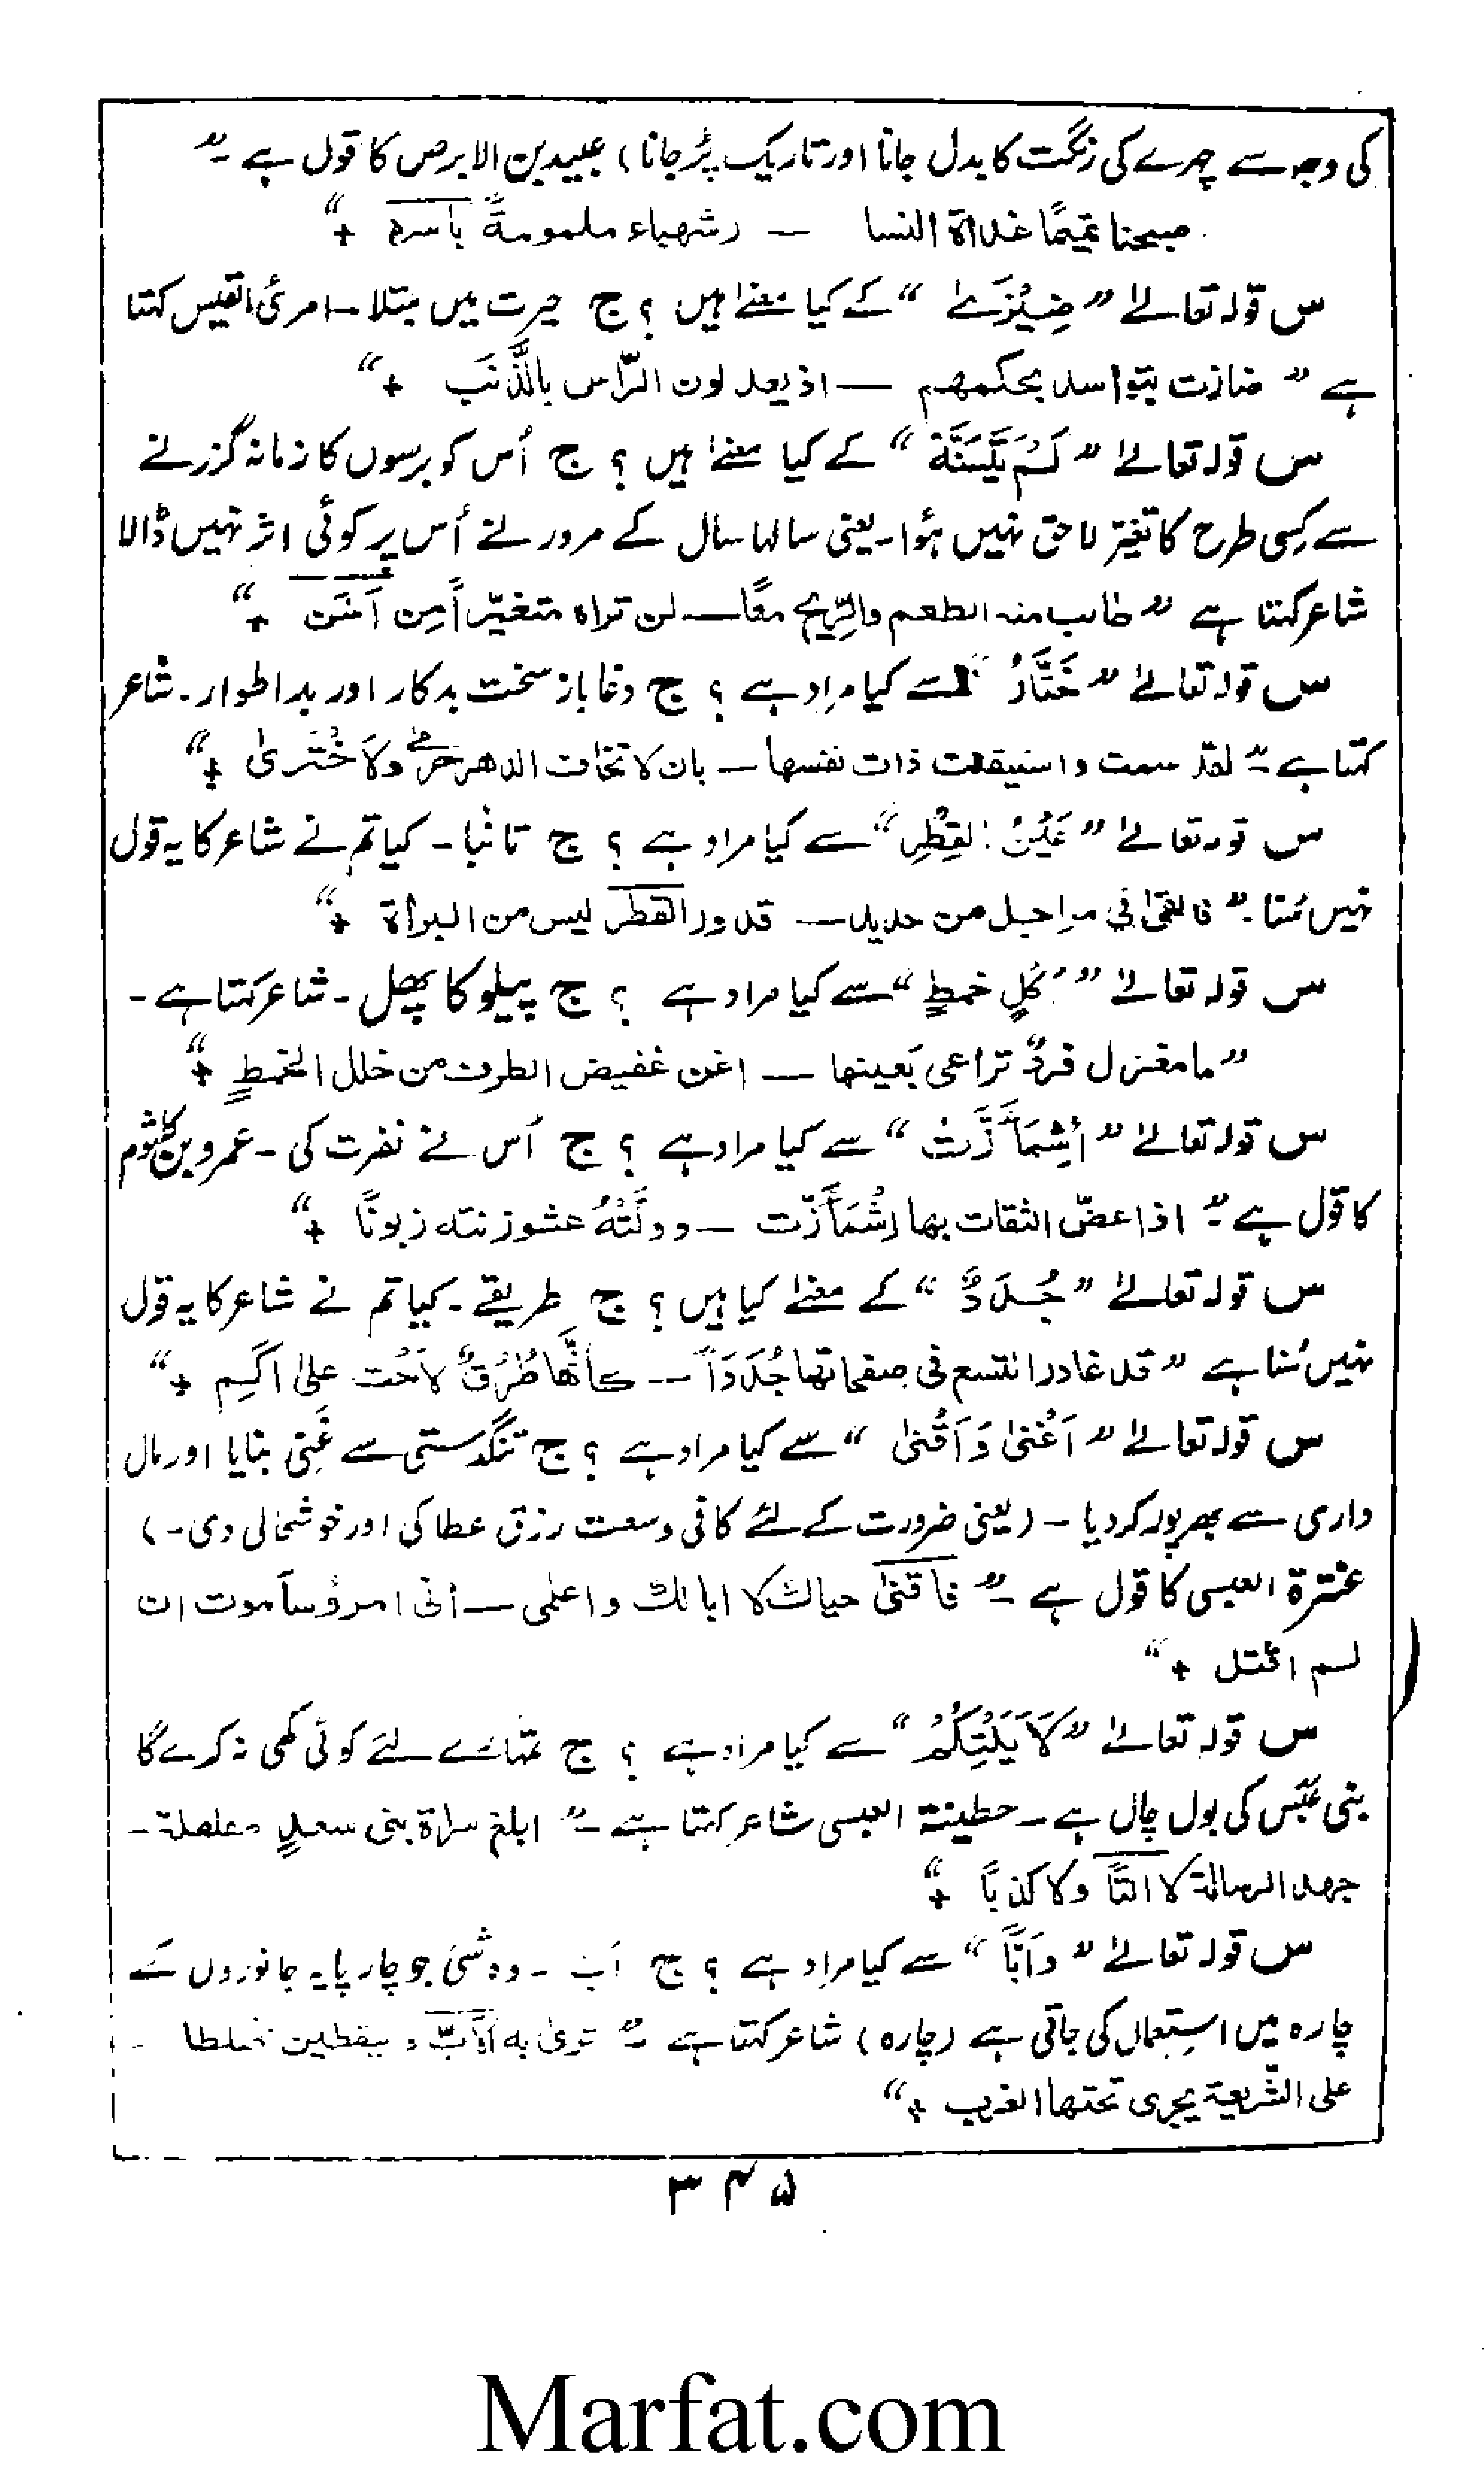 کی وجہ سے چہرے کی رنگت کا بدل جانا اور تاریک پڑ جانا) عبیدبن الابرص کا قول ہے۔"
صبحنا تمیمًا غداۃ النسا — رشھباء ملمومۃً باسرہ +"
س قولہ تعالےٰ "ضِیْزٰےٰ" کے کیا معنےٰ ہیں ؟ ج حیرت میں مبتلا۔ امرئ القیس کہتا
ہے "ضازت بنواسد بحکمھم — اذ یعدلون الرّاس بالذَّنَب +"
س قولہ تعالےٰ "لَمْ یَتَسَنَّہْ" کے کیا معنےٰ ہیں ؟ ج اُس کو برسوں کا زمانہ گزرنے
سے کِسی طرح کا تغیّر لاحق نہیں ہؤا۔ یعنی سالہا سال کے مرور نے اُس پر کوئی اثر نہیں ڈالا
شاعر کہتا ہے "طاب منہ الطعم والرِّیح معًا — لن تراہ متغیّراً مِن اَسَن +"
س قولہ تعالےٰ "خَتَّارٌ" سے کیا مراد ہے ؟ ج دغاباز سخت بدکار اور بد اطوار۔ شاعر
کہتا ہے "لقد واستیقنت ذات نفسھا — بان لا تخاف الدھر صرمی ولاَ خَتَریٰ +"
س قولہ تعالےٰ "عَیْنَ القِطْرِ" سے کیا مراد ہے ؟ ج تانبا۔ کیا تم نے شاعر کا یہ قول
نہیں سُنا۔" فالقیٰ فی مراجل من حدید — قدور القطر لیس من البراۃ +"
س قولہ تعالےٰ "اُکُلٍ خمطٍ" سے کیا مراد ہے ؟ ج پیلو کا پھل۔ شاعر کہتا ہے۔
"ما مغزل فردٌ تراعی بَعینھا — اغن غضیض الطرف من خلل الخمطٍ +"
س قولہ تعالےٰ "اِشْمَأَزَّتْ" سے کیا مراد ہے ؟ ج اُس نے نفرت کی۔ عمرو بن کلثوم
کا قول ہے " اذا عضّ الثقات بھا اشْمَأَزّت — وولَّتْہُ عشوزنتہ زبونًا +"
س قولہ تعالےٰ "جُدَدٌ" کے معنےٰ کیا ہیں ؟ ج طریقے۔ کیا تم نے شاعر کا یہ قول
نہیں سُنا ہے "قد غادر النسع فی صفحاتھا جُدَدَاً — کأنَّھا طُرُقٌ لاَحَت علیٰ اکَمِ +"
س قولہ تعالےٰ "اَغْنیٰ وَ اَقْنیٰ" سے کیا مراد ہے ؟ ج تنگدستی سے غَنِی بنایا اور مال
داری سے بھرپور کر دیا۔ (یعنی ضرورت کے لئے کافی وسعت رزق عطا کی اور خوشحالی دی۔)
عنترۃ العبسی کا قول ہے۔ "فاقنیٰ حیاك لا ابا لك واعلمی — اَنی امرؤ ساَموت ان
لم اقتل +"
س قولہ تعالےٰ "لاَ یَلِتْکُمْ" سے کیا مراد ہے ؟ ج تمہارے لئے کوئی کمی نہ کرے گا
بنی عَبْس کی بول چال ہے۔ حطیئۃ العبسی شاعر کہتا ہے۔" ابلغ سراۃ بنی سعدٍ مغلغلۃ۔
جھد الرسالۃ لا التًا ولا کذبًا +"
س قولہ تعالےٰ "وَاَبًّا" سے کیا مراد ہے ؟ ج اَب۔ وہ شَئ جو چارپایہ جانوروں کے
چارہ میں استِعمال کی جاتی ہے (چارہ) شاعر کہتا ہے۔" تریٰ بہ الاَبّ و یقطین خلطا -
علی الشّریعۃ یجری تحتھا الغرب +"
۳۴۵
Marfat.com